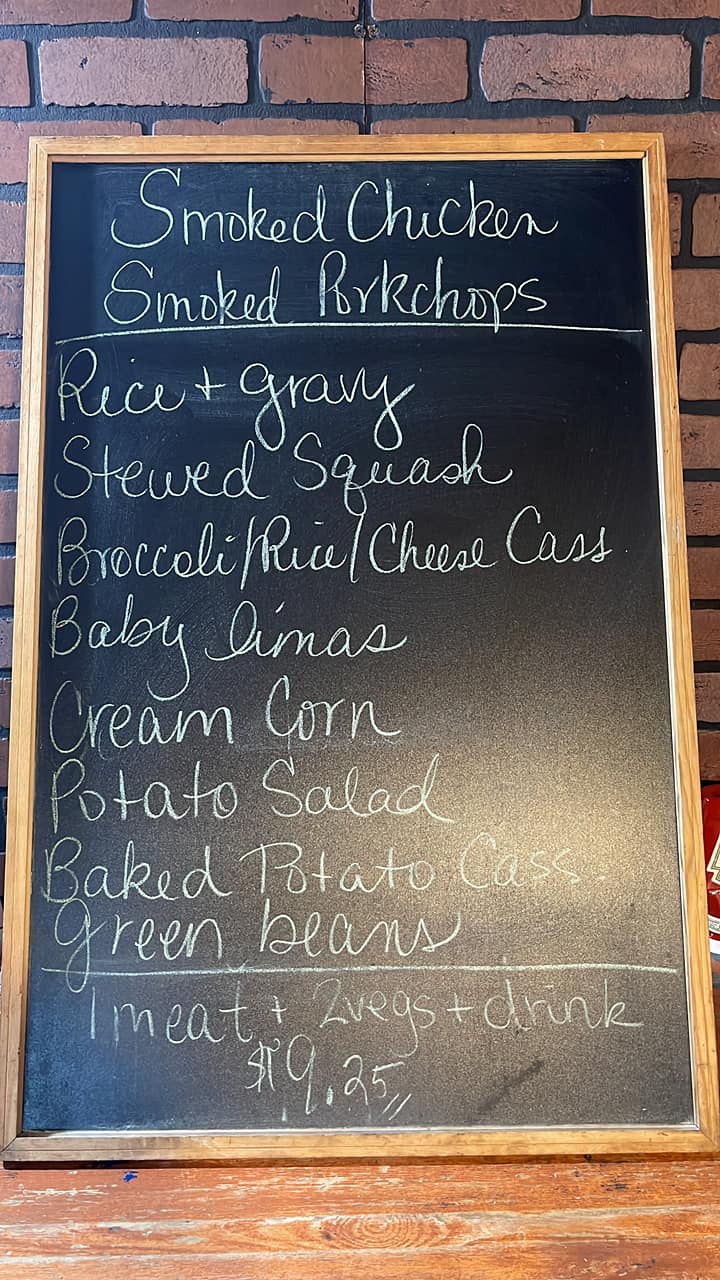 Smoked Chicken
Smoked Porkchops
Rice + gravy
Stewed Squash
Broccoli/Rice/Cheese Cass
Baby limas
Cream Corn
Potato Salad
Baked Potato Cass.
green beans
1 meat + 2 vegs + drink
$9.25